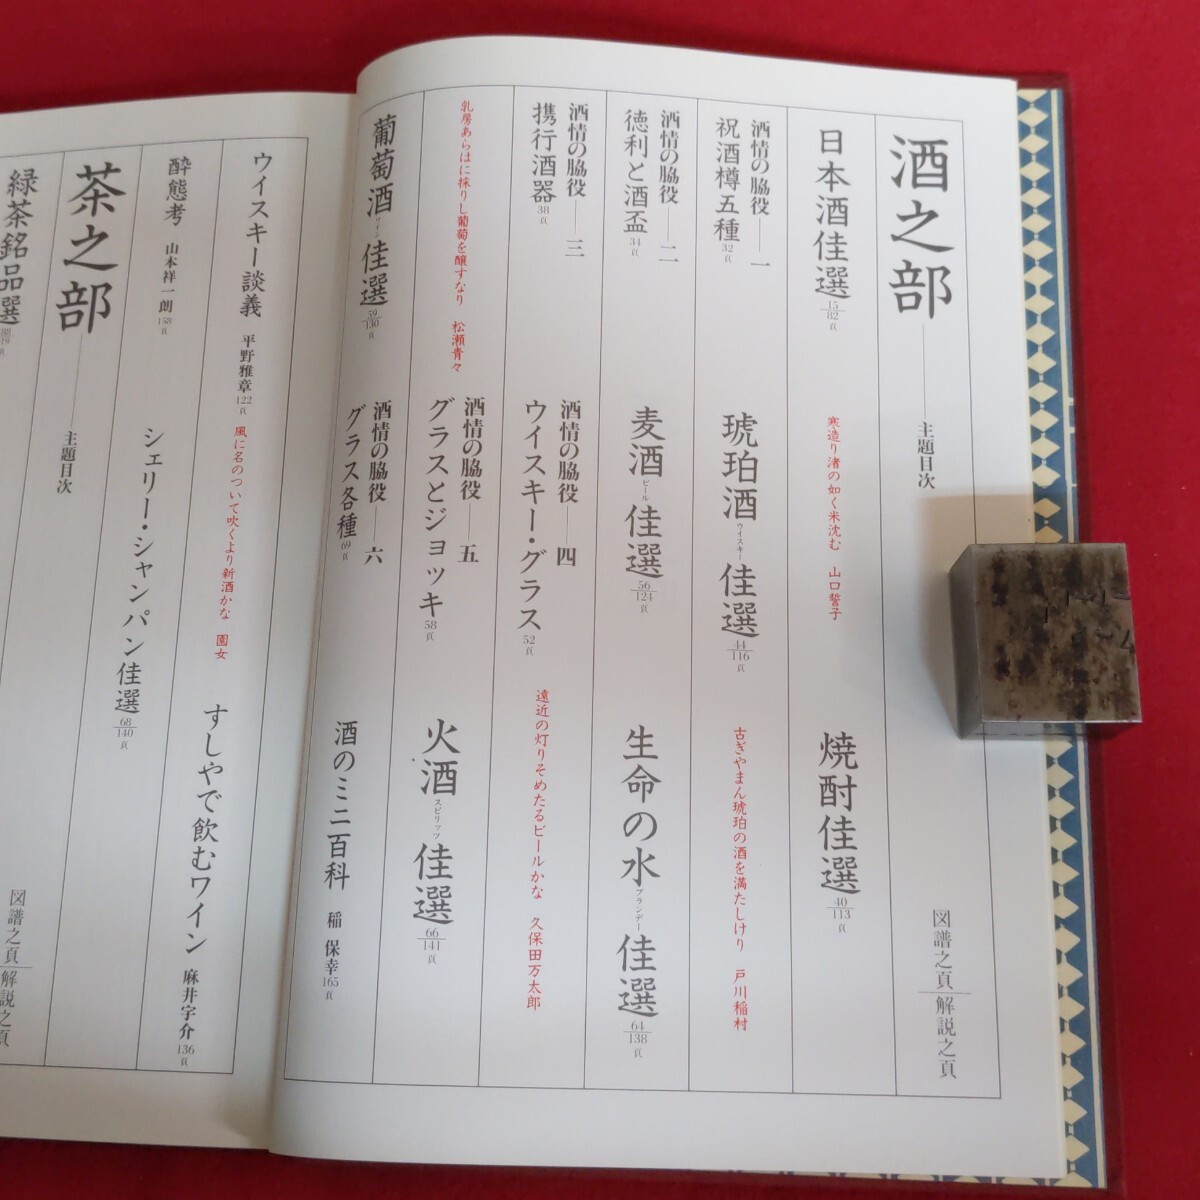 酒之部――主題目次
図譜之頁
解説之頁
日本酒佳選 15/82頁
寒造り渚の如く米沈む 山口誓子
焼酎佳選 40/113頁
酒情の脇役――一
祝酒樽五種 32頁
琥珀酒佳選 44/116頁
ウイスキー
古ぎやまん琥珀の酒を満たしけり 戸川稲村
酒情の脇役――二
徳利と酒盃 34頁
麦酒佳選 56/124頁
ビール
生命の水佳選 64/138頁
ブランデー
酒情の脇役――三
携行酒器 38頁
酒情の脇役――四
ウイスキー・グラス 52頁
遠近の灯りそめたるビールかな 久保田万太郎
乳房あらはに採りし葡萄を醸すなり 松瀬青々
酒情の脇役――五
グラスとジョッキ 58頁
火酒佳選 66/141頁
スピリッツ
葡萄酒佳選 59/130頁
ワイン
酒情の脇役――六
グラス各種 69頁
酒のミニ百科 稲 保幸 165頁
ウイスキー談義 平野雅章 122頁
風に名のついて吹くより新酒かな 園女
すしやで飲むワイン 麻井宇介 136頁
酔態考 山本祥一朗 158頁
シェリー・シャンパン佳選 68/140頁
茶之部――主題目次
図譜之頁
解説之頁
緑茶銘品選